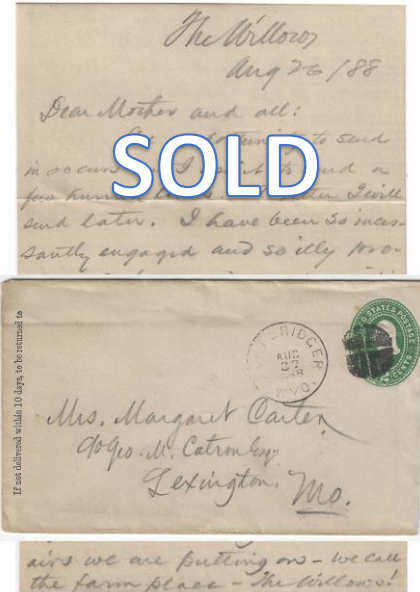 The Willows
Aug 26/88
Dear Mother and all:
to send
in I to send a
few I will
send later. I have been so inces-
santly engaged and so illy pro-
SOLD
If not delivered within 10 days, to be returned to
BRIDGER
AUG
WYO.
STATES POSTAGE
CENTS
Mrs. Margaret Carter,
c/o Geo. M. Catron Esq
Lexington, Mo.
airs we are putting on - we call
the farm place - The Willows!